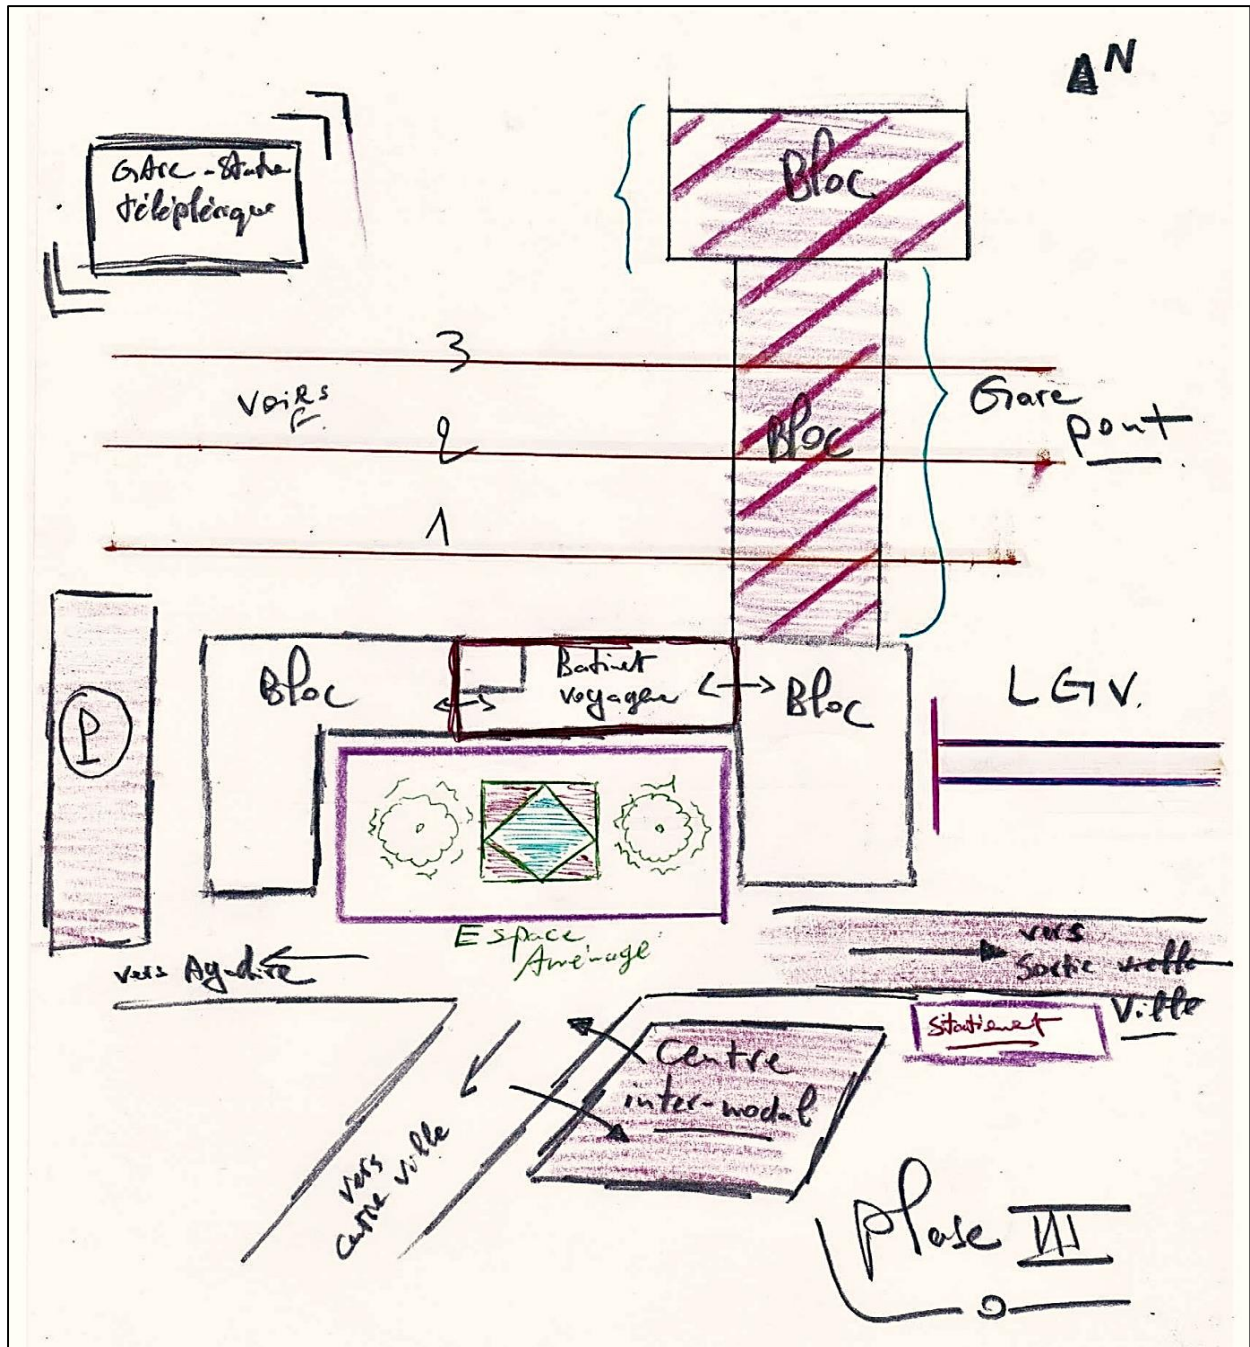 N
Gare - Station
téléphérique
Bloc
3
Voies
2
1
Bloc
Gare
pont
Bloc
Batiment
voyageur
Bloc
LGV.
P
Espace
Aménagé
vers
Sortie
Ville
Centre
inter-modal
vers
centre ville
phase III